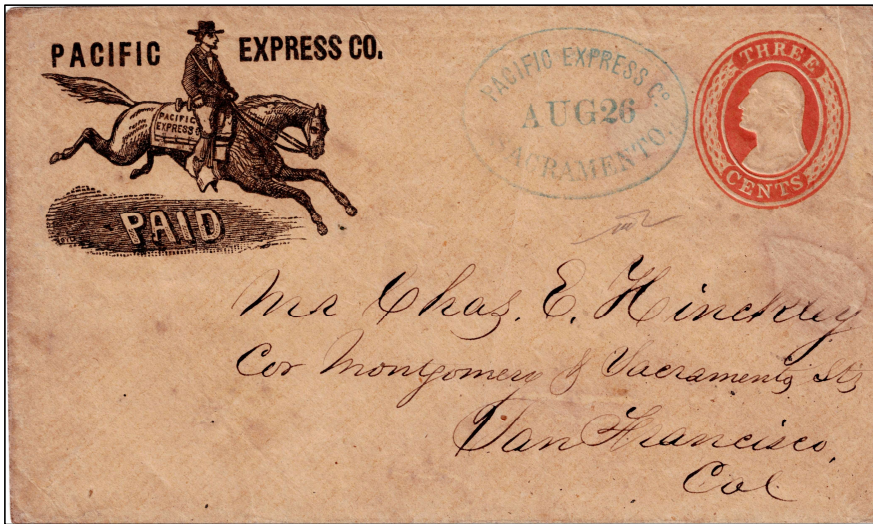 PACIFIC EXPRESS CO.
PACIFIC
EXPRESS Co
PAID
PACIFIC EXPRESS Co
AUG 26
SACRAMENTO.
THREE
CENTS
Mr Chas. E. Hinckley
Cor Montgomery & Sacramento Sts
San Francisco,
Cal